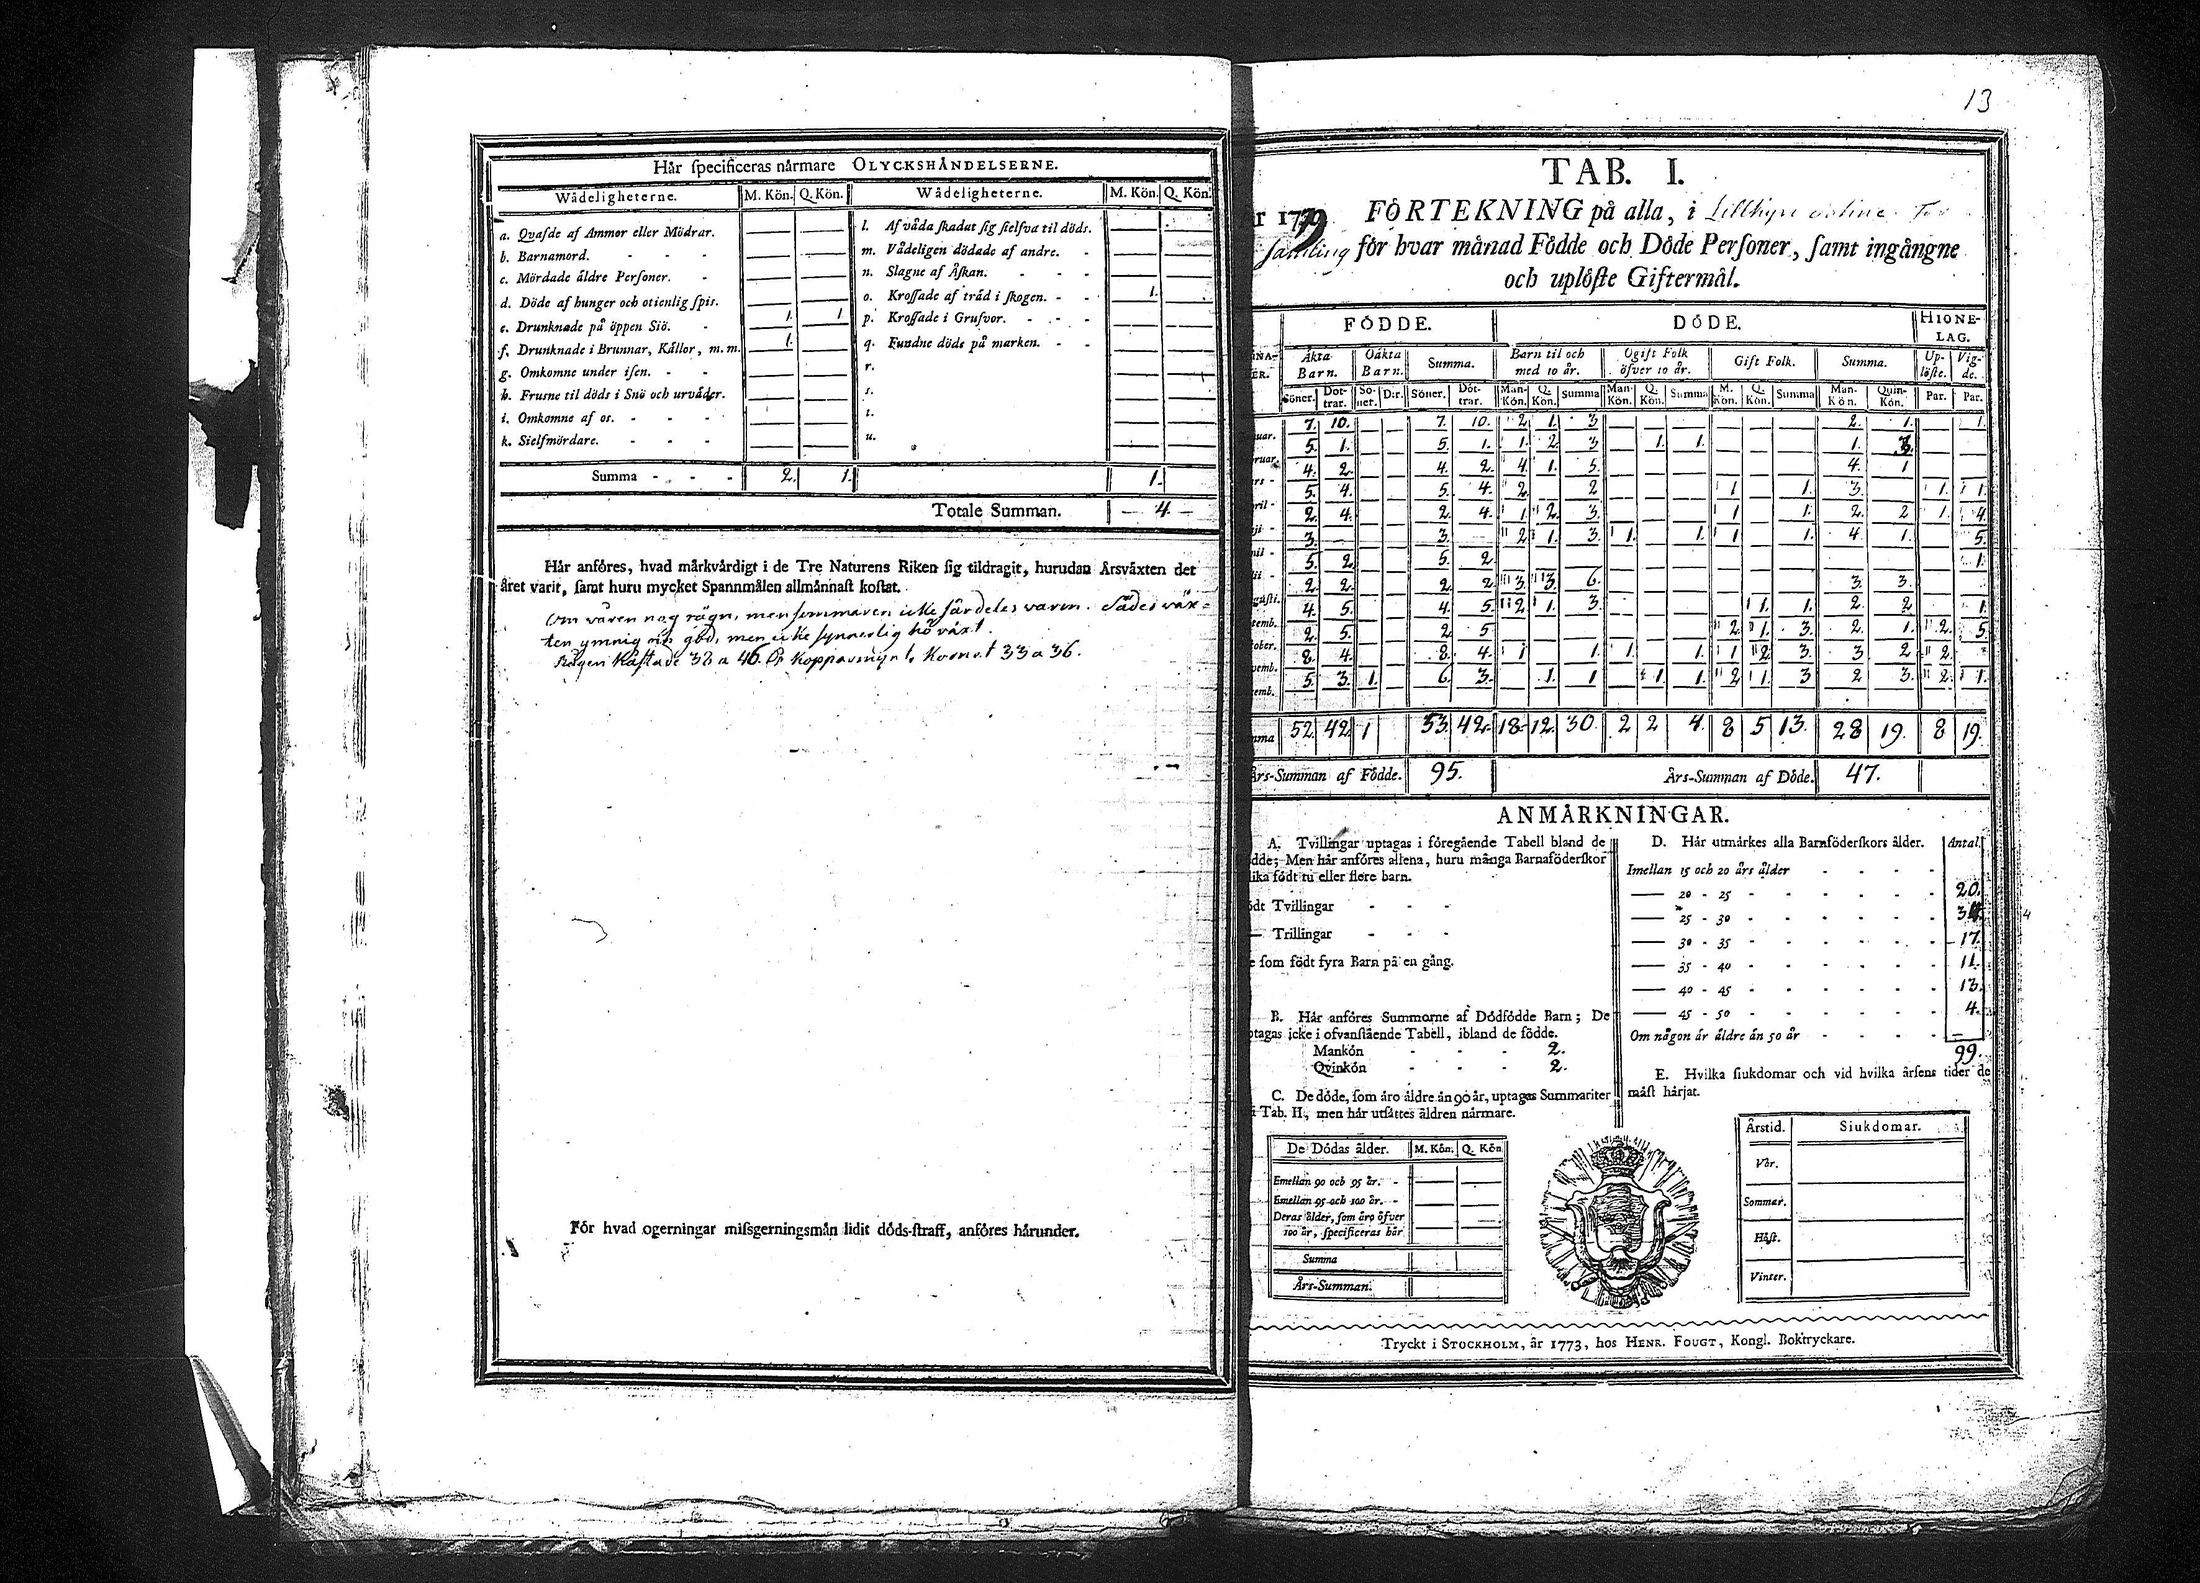 Här specificeras närmare OLYCKSHÄNDELSERNE.
Wådeligheterne. M. Kön. Q. Kön. Wådeligheterne. M. Kön. Q. Kön.
a. Qvafde af Ammor eller Mödrar. — — l. Af våda skadat sig sielfva til döds. — —
b. Barnamord. - - - — — m. Vådeligen dödade af andre. - — —
c. Mördade äldre Personer. - — — n. Slagne af Åskan. - - - — —
d. Döde af hunger och otienlig spis. — — o. Krossade af träd i skogen. - - 1. —
e. Drunknade på öppen Siö. - 1. 1. p. Krossade i Grufvor. - - - — —
f. Drunknade i Brunnar, Källor, m.m. 1. — q. Fundne döde på marken. - - — —
g. Omkomne under isen. - - — — r. — —
h. Frusne til döds i Snö och urväder. — — s. — —
i. Omkomne af os. - - - — — t. — —
k. Sielfmördare. - - - — — u. — —
Summa - - - 2. 1. 1.
Totale Summan. — 4. —
Här anföres, hvad märkvärdigt i de Tre Naturens Riken sig tildragit, hurudan Årsväxten det
året varit, samt huru mycket Spannmålen allmännast kostat.
Om våren nog rägn, men sommaren icke särdeles varm. Sädes väx=
ten ymnig och god, men icke synnerlig hö växt.
Rågen kåstade 38 a 46. kopparmynt, Kornet 33 a 36.
För hvad ogerningar missgerningsmän lidit döds-straff, anföres härunder.
13
TAB. I.
år 1779 FÖRTEKNING på alla, i
samling för hvar månad Födde och Döde Personer, samt ingångne
och uplöste Giftermål.
FÖDDE. DÖDE. HIONE-
LAG.
Äkta Barn. Oäkta Barn. Summa. Barn til och med 10 år. Ogift Folk öfver 10 år. Gift Folk. Summa. Up- löste. Vig- de.
Söner. Döt- trar. Sö- ner. D:r. Söner. Döt- trar. Man- Kön. Q. Kön. Summa Man- Kön. Q. Kön. Summa M. Kön. Q. Kön. Summa Man- Kön. Quin- Kön. Par. Par.
uar. 7. 10. — — 7. 10. 2. 1. 3 — — — — — — 2. 1. — 1.
ruar. 5. 1. — — 5. 1. 1. 2. 3 — 1. 1. — — — 1. 3. — —
rs - 4. 2. — — 4. 2. 4. 1. 5. — — — — — — 4. 1 — —
ril - 5. 4. — — 5. 4. 2. — 2 — — — 1 — 1. 3. — 1. 1.
ji - 2. 4. — — 2. 4. 1 2. 3. — — — 1 — 1. 2. 2 1. 4.
nii - 3. — — — 3. — 2. 1. 3. 1. — 1. 1 — 1. 4. 1. — 5.
lii - 5. 2. — — 5. 2. — — — — — — — — — — — — 1.
gusti. 2. 2. — — 2. 2. 3. 3. 6. — — — — — — 3. 3. — —
temb. 4. 5. — — 4. 5. 2. 1. 3. — — — — 1. 1. 2. 2. — 1.
tober. 2. 5. — — 2. 5 — — — — — — 2. 1. 3. 2. 1. 2. 5.
vemb. 8. 4. — — 8. 4. 1 — 1. 1. — 1. 1 2. 3. 3 2. 2. —
emb. 5. 3. 1. — 6. 3. — 1. 1 — 1. 1. 2. 1. 3 2 3. 2. 1.
mma 52. 42. 1 53. 42. 18. 12. 30. 2 2 4. 8 5 13. 28 19. 8 19.
Års-Summan af Födde. 95. Års-Summan af Döde. 47.
ANMÄRKNINGAR.
A. Tvillingar uptagas i föregående Tabell bland de
dde; Men här anföres allena, huru många Barnaföderskor
lika födt tu eller flere barn.
ödt Tvillingar - - -
— Trillingar - - -
e som födt fyra Barn på en gång.
B. Här anföres Summorne af Dödfödde Barn; De
ptagas icke i ofvanstående Tabell, ibland de födde.
Mankön - - - 2.
Qvinkön - - - 2.
C. De döde, som äro äldre än 90 år, uptagas Summariter
i Tab. II, men här utsättes åldren närmare.
De Dödas ålder. M. Kön. Q. Kön
Emellan 90 och 95 år. - — —
Emellan 95 och 100 år. - — —
Deras ålder, som äro öfver
100 år, specificeras här — —
Summa
Års-Summan.
D. Här utmärkes alla Barnföderskors ålder. Antal.
Imellan 15 och 20 års ålder - - - -
— 20 - 25 - - - - - - 20.
— 25 - 30 - - - - - - 34. 4
— 30 - 35 - - - - - - 17.
— 35 - 40 - - - - - - 11.
— 40 - 45 - - - - - - 13.
— 45 - 50 - - - - - - 4.
Om någon är äldre än 50 år - - - - —
99.
E. Hvilka siukdomar och vid hvilka årsens tider de
mäst härjat.
Årstid. Siukdomar.
Vår.
Sommar.
Höst.
Vinter.
Tryckt i STOCKHOLM, år 1773, hos HENR. FOUGT, Kongl. Boktryckare.